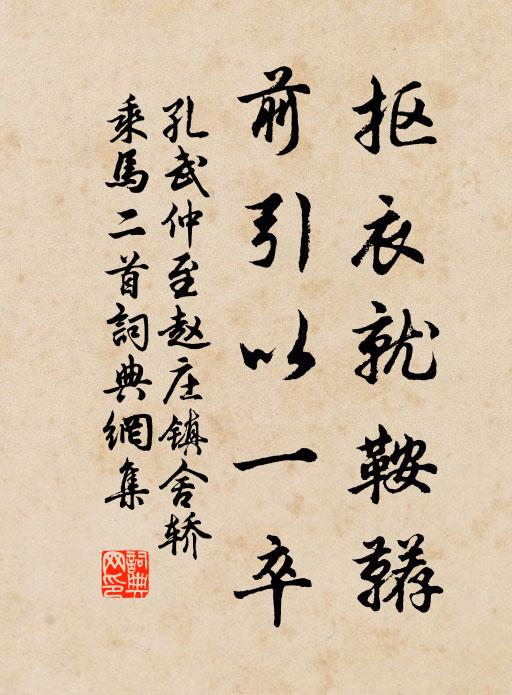 抠衣就鞍鞯
前引以一卒
孔武仲至赵庄镇舍轿
乘馬二首詞典網集
詞典网印